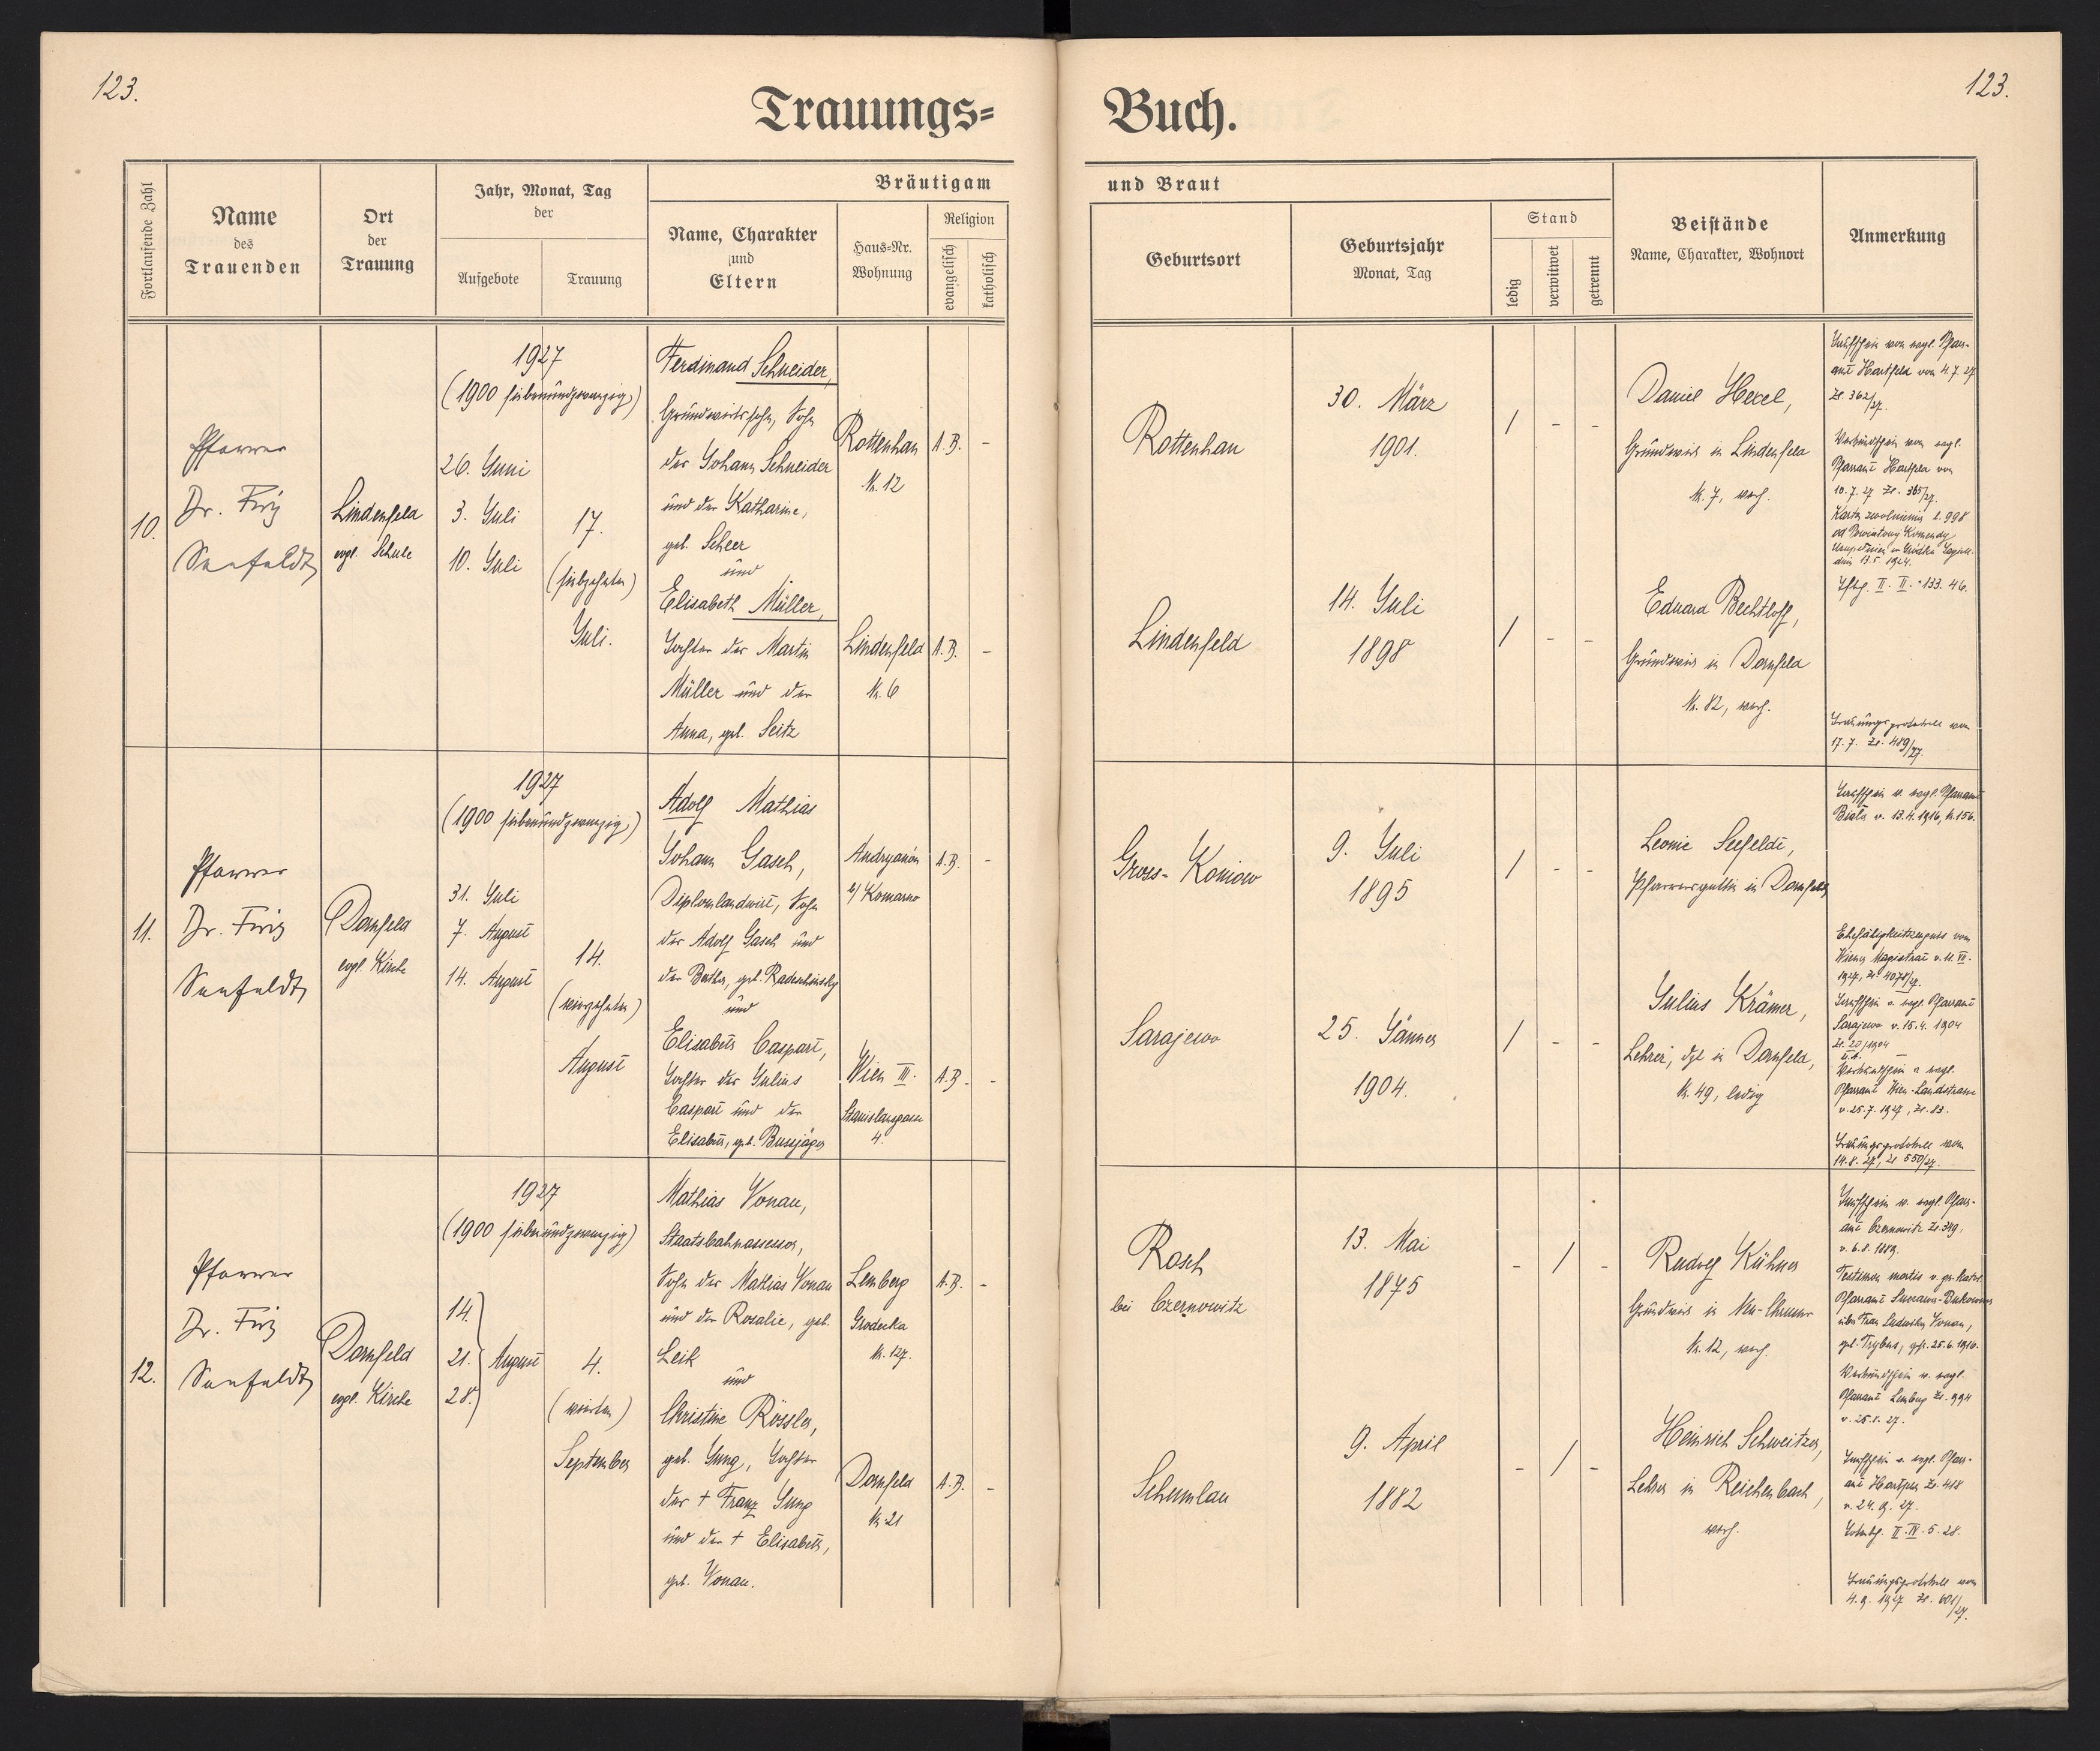 123.
123.
Trauungs=
Buch.
Fortlaufende Zahl
Name
des
Trauenden
Ort
der
Trauung
Jahr, Monat, Tag
der
Aufgebote
Trauung
Bräutigam
Name, Charakter
und
Eltern
Haus-Nr.
Wohnung
Religion
evangelisch
katholisch
und Braut
Geburtsort
Geburtsjahr
Monat, Tag
Stand
ledig
verwitwet
getrennt
Beistände
Name, Charakter, Wohnort
Anmerkung
10.
Pfarrer
Dr. Fritz
Seefeldt
Lindenfeld
evgl. Schule
1927
(1900 siebenundzwanzig)
26. Juni
3. Juli
10. Juli
17.
(siebzehnten)
Juli.
Ferdinand Schneider,
Grundwirtssohn, Sohn
des Johann Schneider
und der Katharine,
geb. Scheer
und
Elisabeth Müller,
Tochter des Martin
Müller und der
Anna, geb. Seitz
Rottenhan
Nr. 12
A.B. -
Lindenfeld
Nr. 6
A.B. -
Rottenhan
30. März
1901.
/ - -
Lindenfeld
14. Juli
1898
/ - -
Daniel Hexel,
Grundwirt in Lindenfeld
Nr. 7, verh.
Eduard Bechtloff,
Grundwirt in Dornfeld
Nr. 82, verh.
Taufschein vom evgl. Pfarr-
amt Hartfeld vom 4.7.27
Zl. 362/27.
Verkündschein vom evgl.
Pfarramt Hartfeld vom
10.7.27 Zl. 365/27.
Karta zwolnienia l. 998
od Powiatowej Komendy
dnia 13.5.1924.
II. II. 133. 46.
Trauungsprotokoll vom
17.7. Zl. 489/27.
11.
Pfarrer
Dr. Fritz
Seefeldt
Dornfeld
evgl. Kirche
1927
(1900 siebenundzwanzig)
31. Juli
7. August
14. August
14.
(vierzehnten)
August
Adolf Mathias
Johann Gasch,
Diplomlandwirt, Sohn
des Adolf Gasch und
der Bertha, geb.
und
Elisabeth Caspart,
Tochter des Julius
Caspart und der
Elisabeth, geb. Bussjäger
Andryanów
b/ Komarno
A.B. -
Wien III.
Stanislausgasse
4.
A.B. -
Gross-Koniow
9. Juli
1895
/ - -
Sarajewo
25. Jänner
1904.
/ - -
Leonie Seefeldt,
Pfarrersgattin in Dornfeld
Julius Krämer,
Lehrer, dzt in Dornfeld,
Nr. 49, ledig
Taufschein v. evgl. Pfarramt
Biala v. 13.4.1916, Nr. 156.
Ehefähigkeitszeugnis vom
Wiener Magistrat v. 11. VII.
1927, Zl. 4078/27.
Taufschein v. evgl. Pfarramt
Sarajewo v. 15.4.1904
Zl. 20/1904
Verkündschein v. evgl.
Pfarramt Wien-Landstrasse
v. 25.7.1927, Zl. 83.
Trauungsprotokoll vom
14.8.27, Zl 550/27.
12.
Pfarrer
Dr. Fritz
Seefeldt
Dornfeld
evgl. Kirche
1927
(1900 siebenundzwanzig)
14.
21. August
28.
4.
(vierten)
September
Mathias Vonau,
Staatsbahnassessor,
Sohn des Mathias Vonau
und der Rosalie, geb.
Leik
und
Christine Rössler,
geb. Jung, Tochter
des + Franz Jung
und der + Elisabeth,
geb. Vonau.
Lemberg
Grodecka
Nr. 127.
A.B. -
Dornfeld
Nr. 21
A.B. -
Rosch
bei Czernowitz
13. Mai
1875
- / -
Schumlau
9. April
1882
- / -
Rudolf Kühner
Grundwirt in Neu-Chrusno
Nr. 12, verh.
Heinrich Schweitzer,
Lehrer in Reichenbach,
verh.
Taufschein v. evgl. Pfarr-
amt Czernowitz Zl. 349,
v. 6.8.1889.
Testimon mortis v. gr. kath.
Pfarramt Suczawa-Bukowina
über Frau Ludwika Vonau,
geb. Trybus, gest. 25.6.1916.
Verkündschein v. evgl.
Pfarramt Lemberg Zl. 994
v. 28.8.27.
Taufschein v. evgl. Pfarr-
amt Hartfeld Zl. 418
v. 24.9.27.
II. IV. 5. 28.
Trauungsprotokoll vom
4.9.1927 Zl. 601/27.